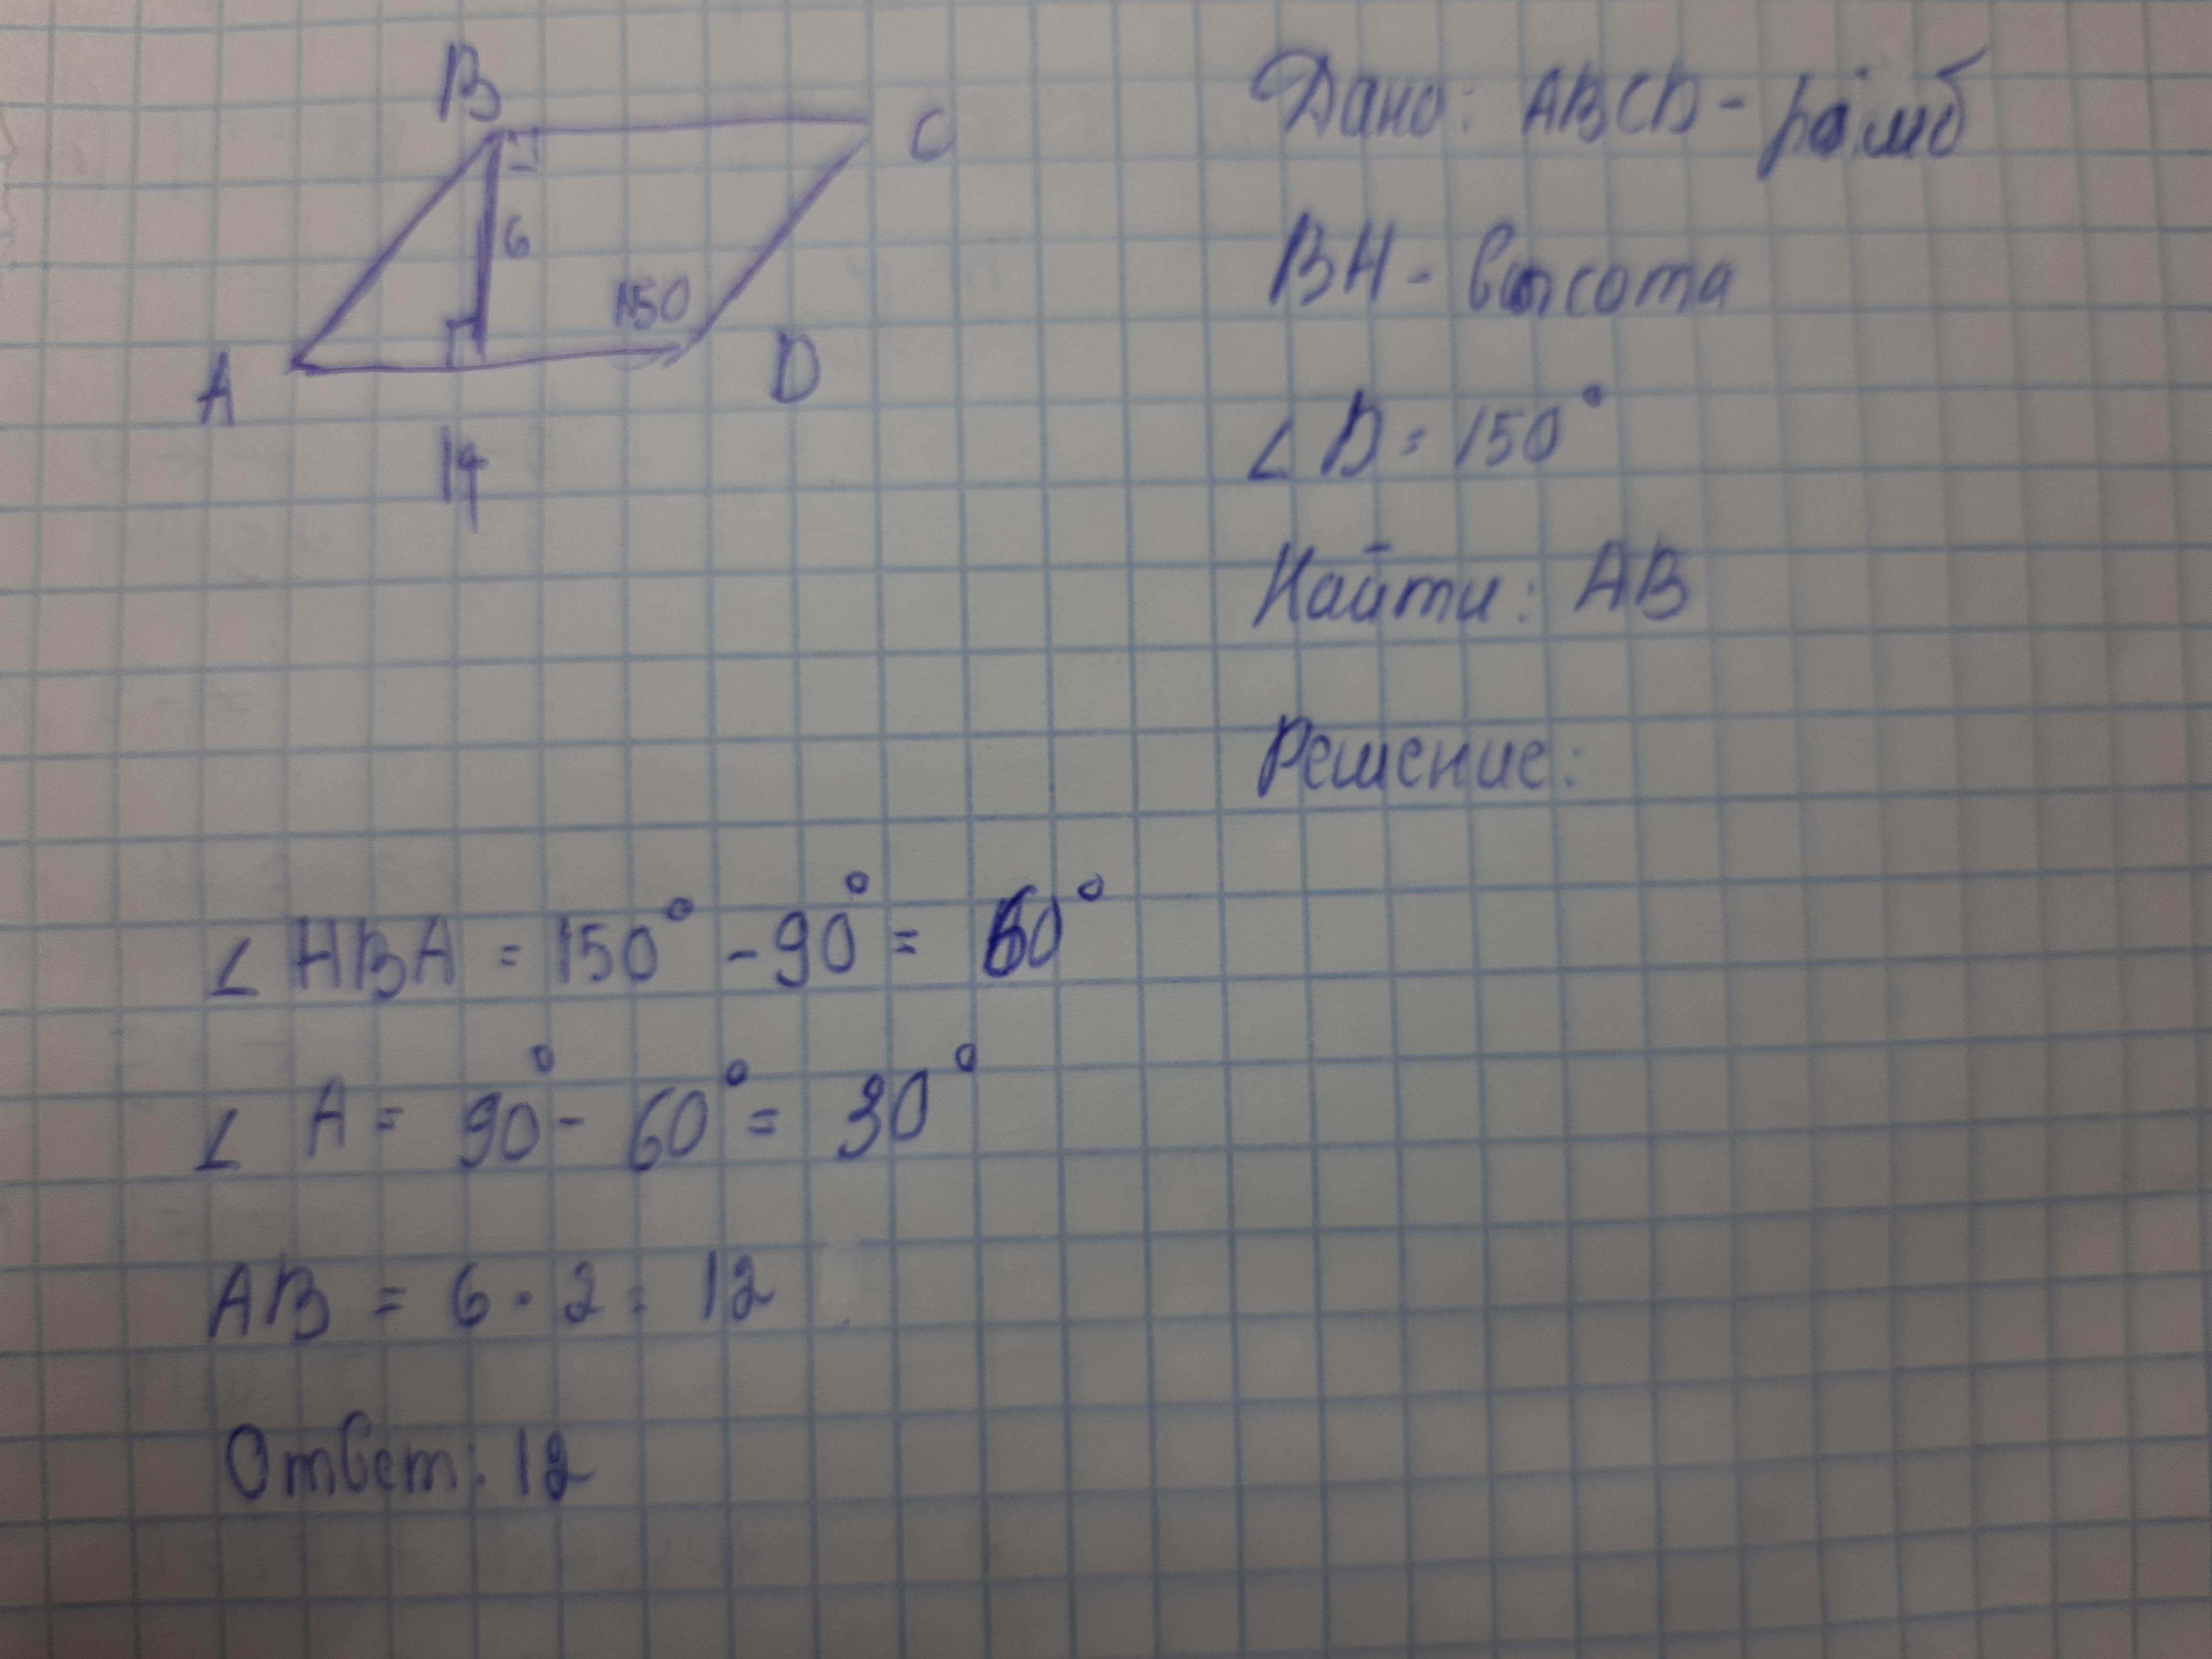 B
C
6
150
A
D
14
Дано: ABCD - ромб
BH - высота
∠ D = 150°
Найти: AB
Решение:
∠ HBA = 150° - 90° = 60°
∠ A = 90° - 60° = 30°
AB = 6 · 2 = 12
Ответ: 12